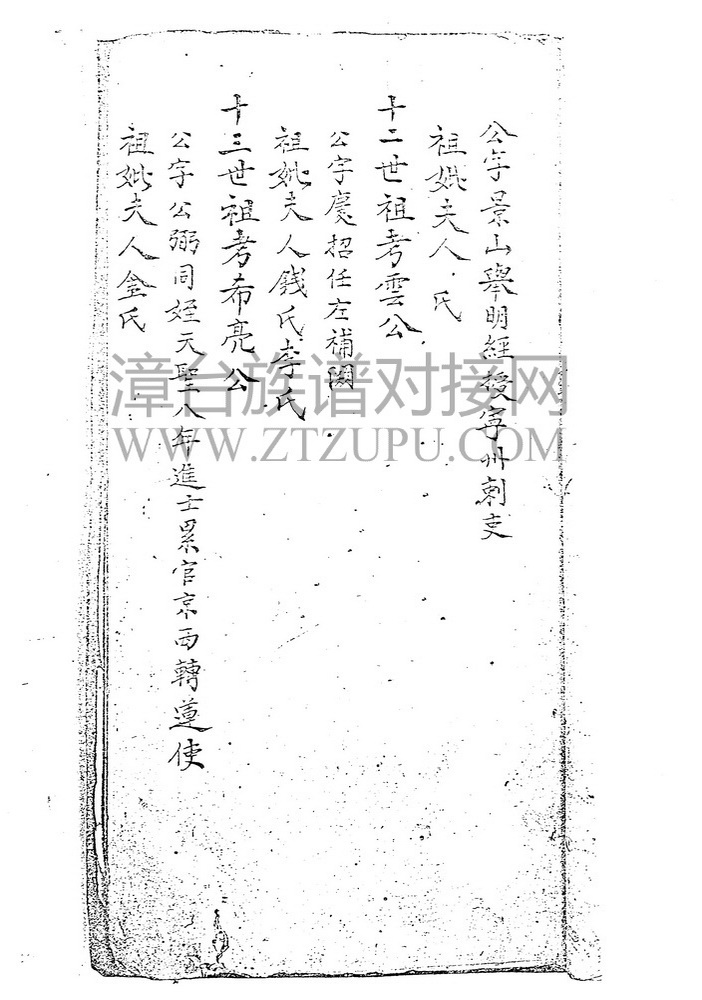 公字景山舉明經授寧州刺吏
祖妣夫人 氏
十二世祖考雲公
公字慶招任左補闕
祖妣夫人錢氏李氏
十三世祖考布亮公
公字公弼同姪天聖八年進士累官京西轉運使
祖妣夫人金氏
漳台族谱对接网
WWW.ZTZUPU.COM